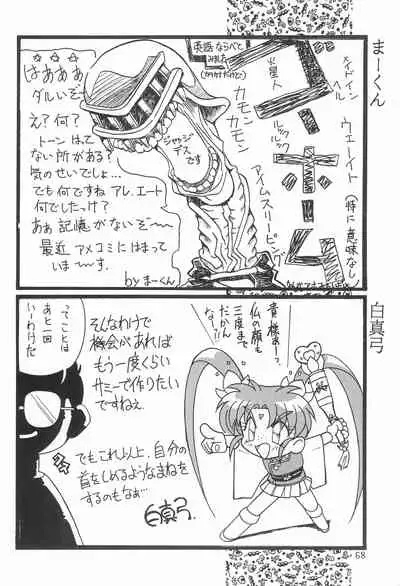 まーくん
はぁぁぁ
ダルいぞー
え?何?
トーンはって
ない所がある?
気のせいでしょ…
でも何ですね アレ、エート
何でしたっけ?
あぁ 記憶がないぞ〜
最近 アメコミにはまって
いま〜す。
by まーくん
英語ならべて
みました
ジャッジ
デス
です
火星人
カモン
カモン
メイドイン
ヘル
ルックルック
ウェーイト
アイムスリーピング
(特に意味なし)
白真弓
貴様ぁーっ?
仏の顔も
三度まで
だかんな!!
そんなわけで
機会があれば
もう一度くらい
サミーで作りたい
ですねぇ
ってことは
あと一回
いーわけだ
でもこれ以上、自分の
首をしめるようなまねを
するのもなぁ…
白真弓
68